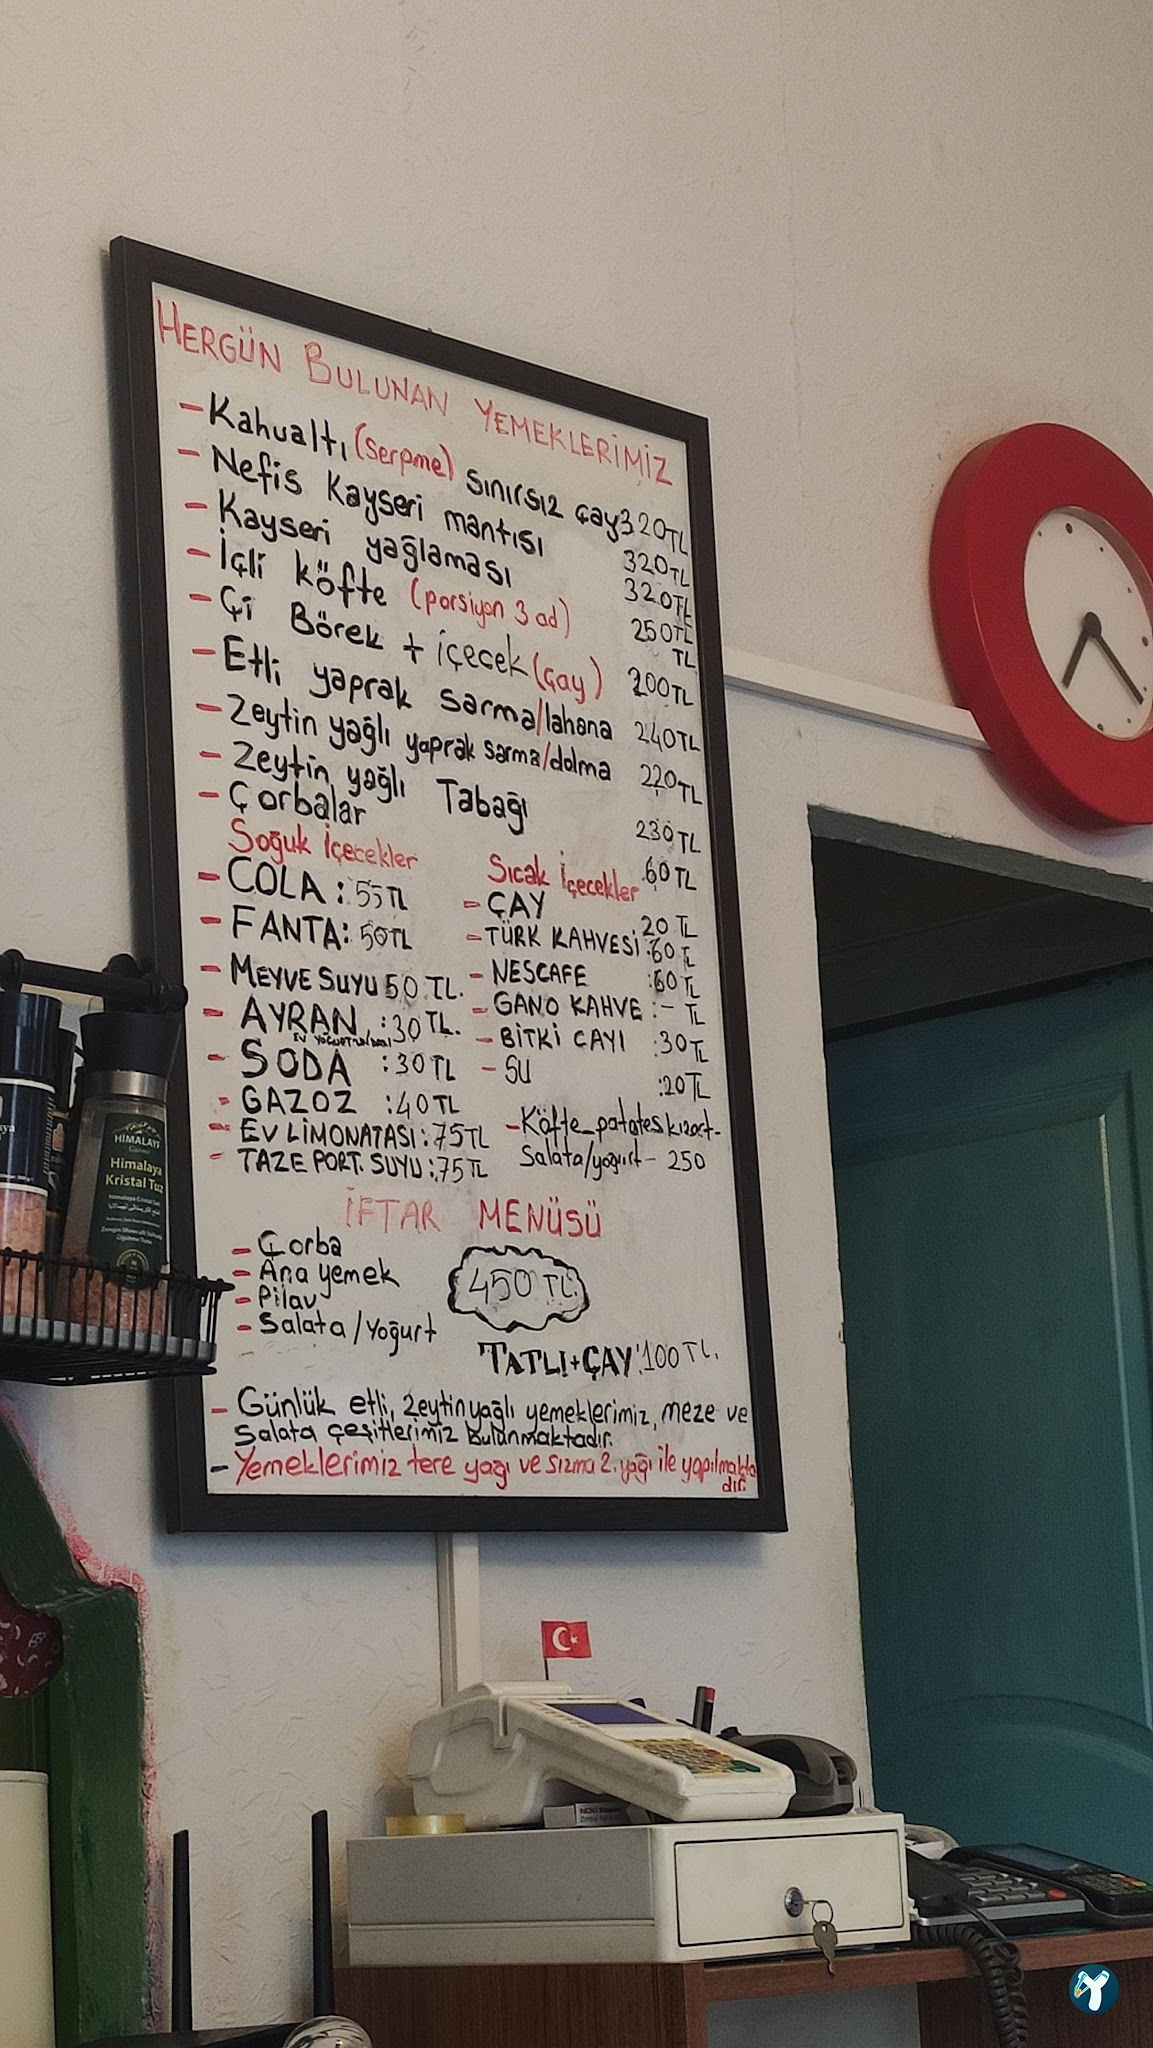 HERGÜN BULUNAN YEMEKLERİMİZ
- Kahvaltı (serpme) sınırsız çay 320 TL
- Nefis Kayseri mantısı 320 TL
- Kayseri yağlaması 320 TL
- İçli köfte (porsiyon 3 ad) 250 TL
TL
- Çi Börek + içecek (çay) 200 TL
- Etli yaprak sarma/lahana 240 TL
- Zeytin yağlı yaprak sarma/dolma 220 TL
- Zeytin yağlı Tabağı 230 TL
- Çorbalar 60 TL
Soğuk İçecekler
- COLA : 55 TL
- FANTA : 50 TL
- MEYVE SUYU 50 TL.
- AYRAN : 30 TL.
EV YOĞURTUNDAN
- SODA : 30 TL
- GAZOZ : 40 TL
- EV LİMONATASI : 75 TL
- TAZE PORT. SUYU : 75 TL
Sıcak İçecekler
- ÇAY 20 TL
- TÜRK KAHVESİ : 60 TL
- NESCAFE : 60 TL
- GANO KAHVE : - TL
- BİTKİ ÇAYI : 30 TL
- SU : 20 TL
- Köfte_patates kızart-
Salata/yoğurt - 250
İFTAR MENÜSÜ
- Çorba
- Ana yemek
- Pilav
- Salata/Yoğurt
450 TL.
TATLI + ÇAY : 100 TL.
- Günlük etli, zeytinyağlı yemeklerimiz, meze ve
Salata çeşitlerimiz bulunmaktadır.
- Yemeklerimiz tere yağı ve sızma z.yağı ile yapılmakta
dır.
HİMALAYA
Himalaya
Kristal Tuz